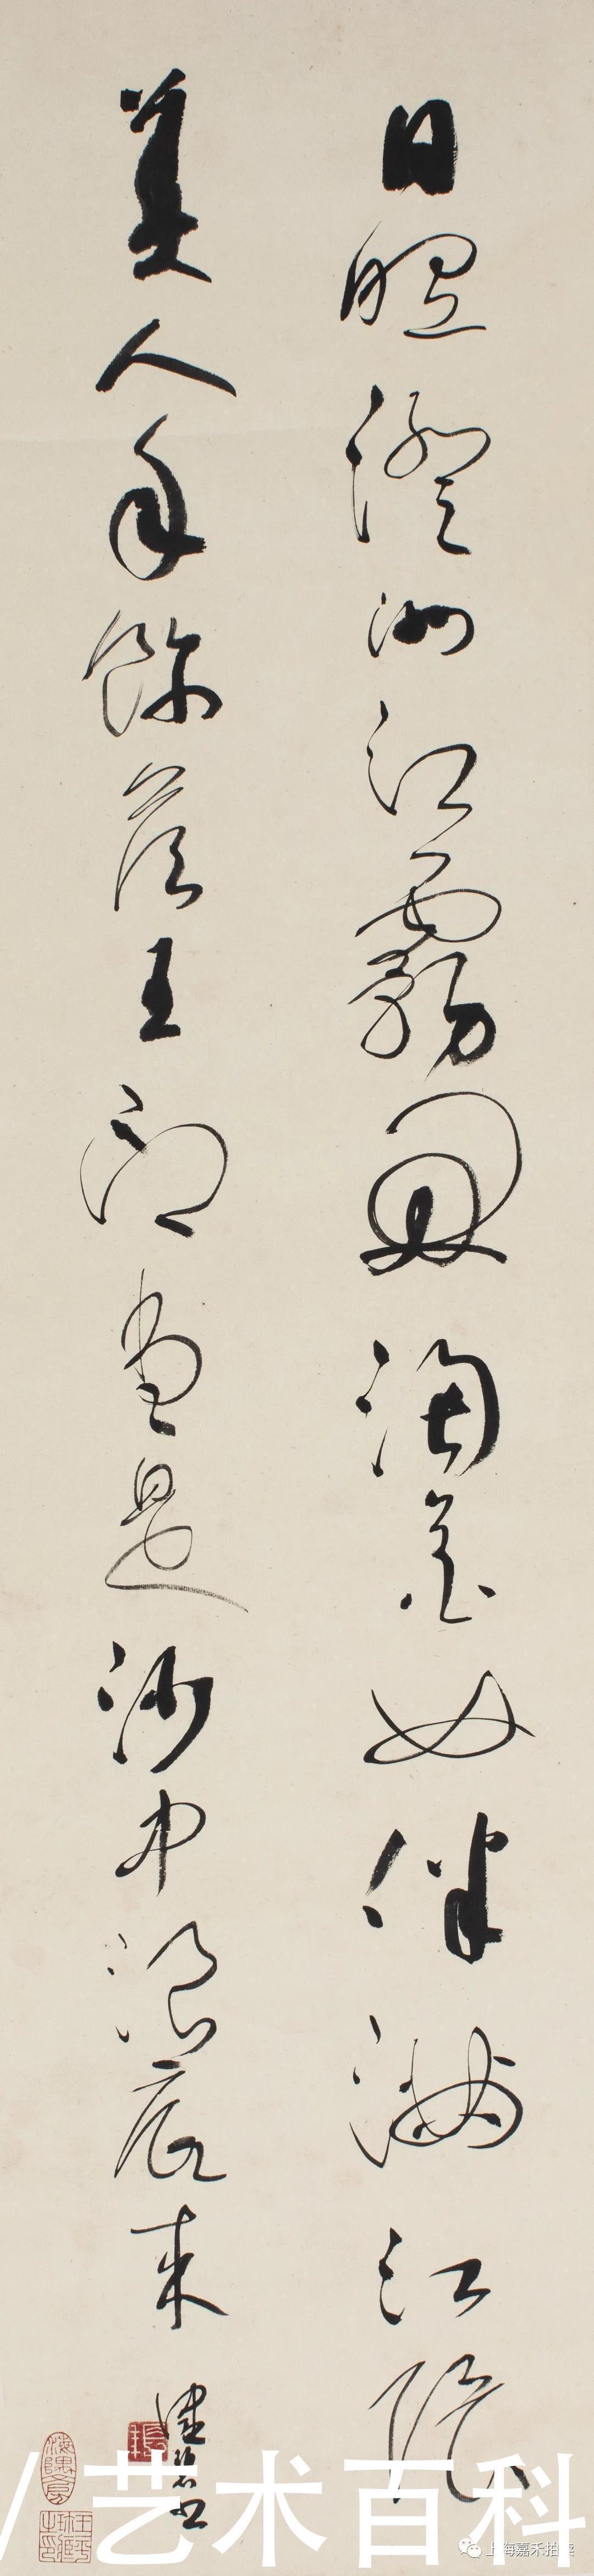 日照澄洲江霧開淘金女伴滿江隈
美人首飾侯王印盡是沙中浪底來
/艺术百科
上海嘉禾拍卖